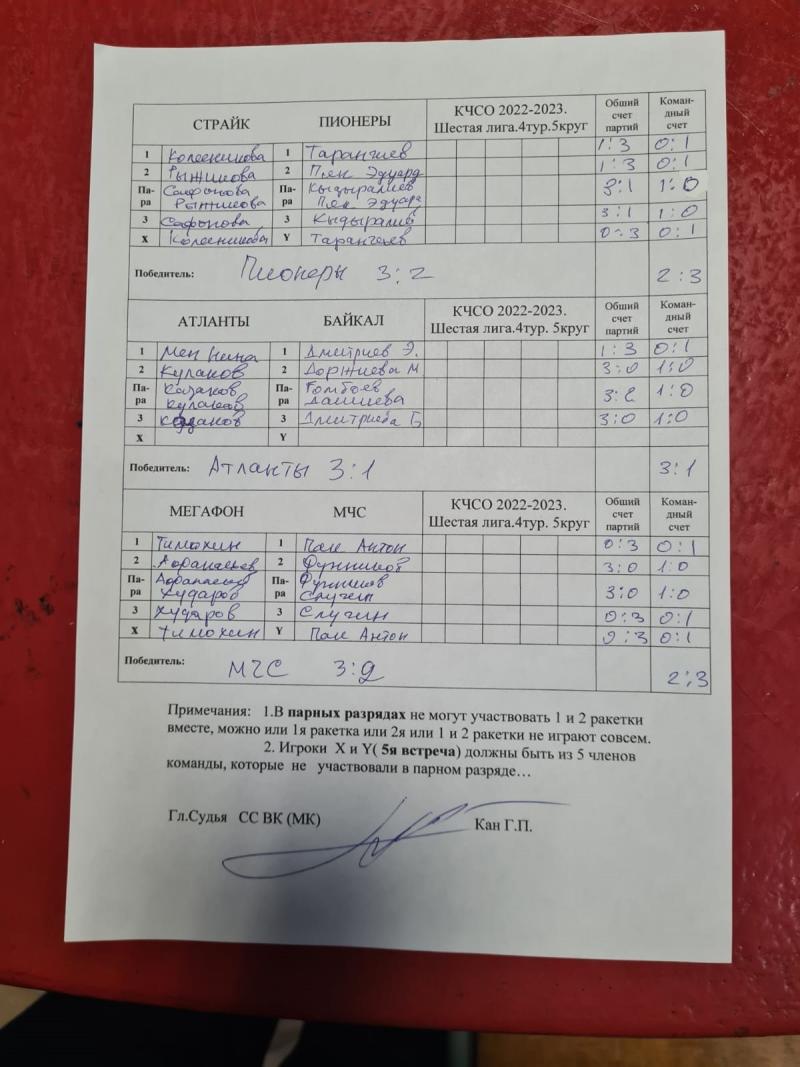 СТРАЙК ПИОНЕРЫ КЧСО 2022-2023. Шестая лига.4тур.5круг Общий счет партий Коман-дный счет
1 Колесникова 1 Тарангиев 1:3 0:1
2 Рыжикова 2 Пяк Эдуард 1:3 0:1
Па-ра Сафонова Рыжикова Па-ра Кыдыралиев Пяк Эдуард 3:1 1:0
3 Сафонова 3 Кыдыралиев 3:1 1:0
X Колесникова Y Тарангиев 0:3 0:1
Победитель: Пионеры 3:2 2:3
АТЛАНТЫ БАЙКАЛ КЧСО 2022-2023. Шестая лига.4тур. 5круг Общий счет партий Коман-дный счет
1 Мен Нина 1 Дмитриев Э. 1:3 0:1
2 Кулаков 2 Доржиева М 3:0 1:0
Па-ра Казаков Кулаков Па-ра Гомбоев Дашиева 3:2 1:0
3 Казаков 3 Дмитриева Б 3:0 1:0
X Y
Победитель: Атланты 3:1 3:1
МЕГАФОН МЧС КЧСО 2022-2023. Шестая лига.4тур. 5круг Общий счет партий Коман-дный счет
1 Тимохин 1 Пак Антон 0:3 0:1
2 Афанасьев 2 3:0 1:0
Па-ра Афанасьев Хударов Па-ра Случен 3:0 1:0
3 Хударов 3 Случин 0:3 0:1
X Тимохин Y Пак Антон 0:3 0:1
Победитель: МЧС 3:2 2:3
Примечания: 1.В парных разрядах не могут участвовать 1 и 2 ракетки
вместе, можно или 1я ракетка или 2я или 1 и 2 ракетки не играют совсем.
2. Игроки X и Y( 5я встреча) должны быть из 5 членов
команды, которые не участвовали в парном разряде…
Гл.Судья СС ВК (МК) Кан Г.П.